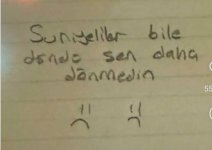 Suriyeliler bile
döndü sen daha
dönmedin
:( :(
55